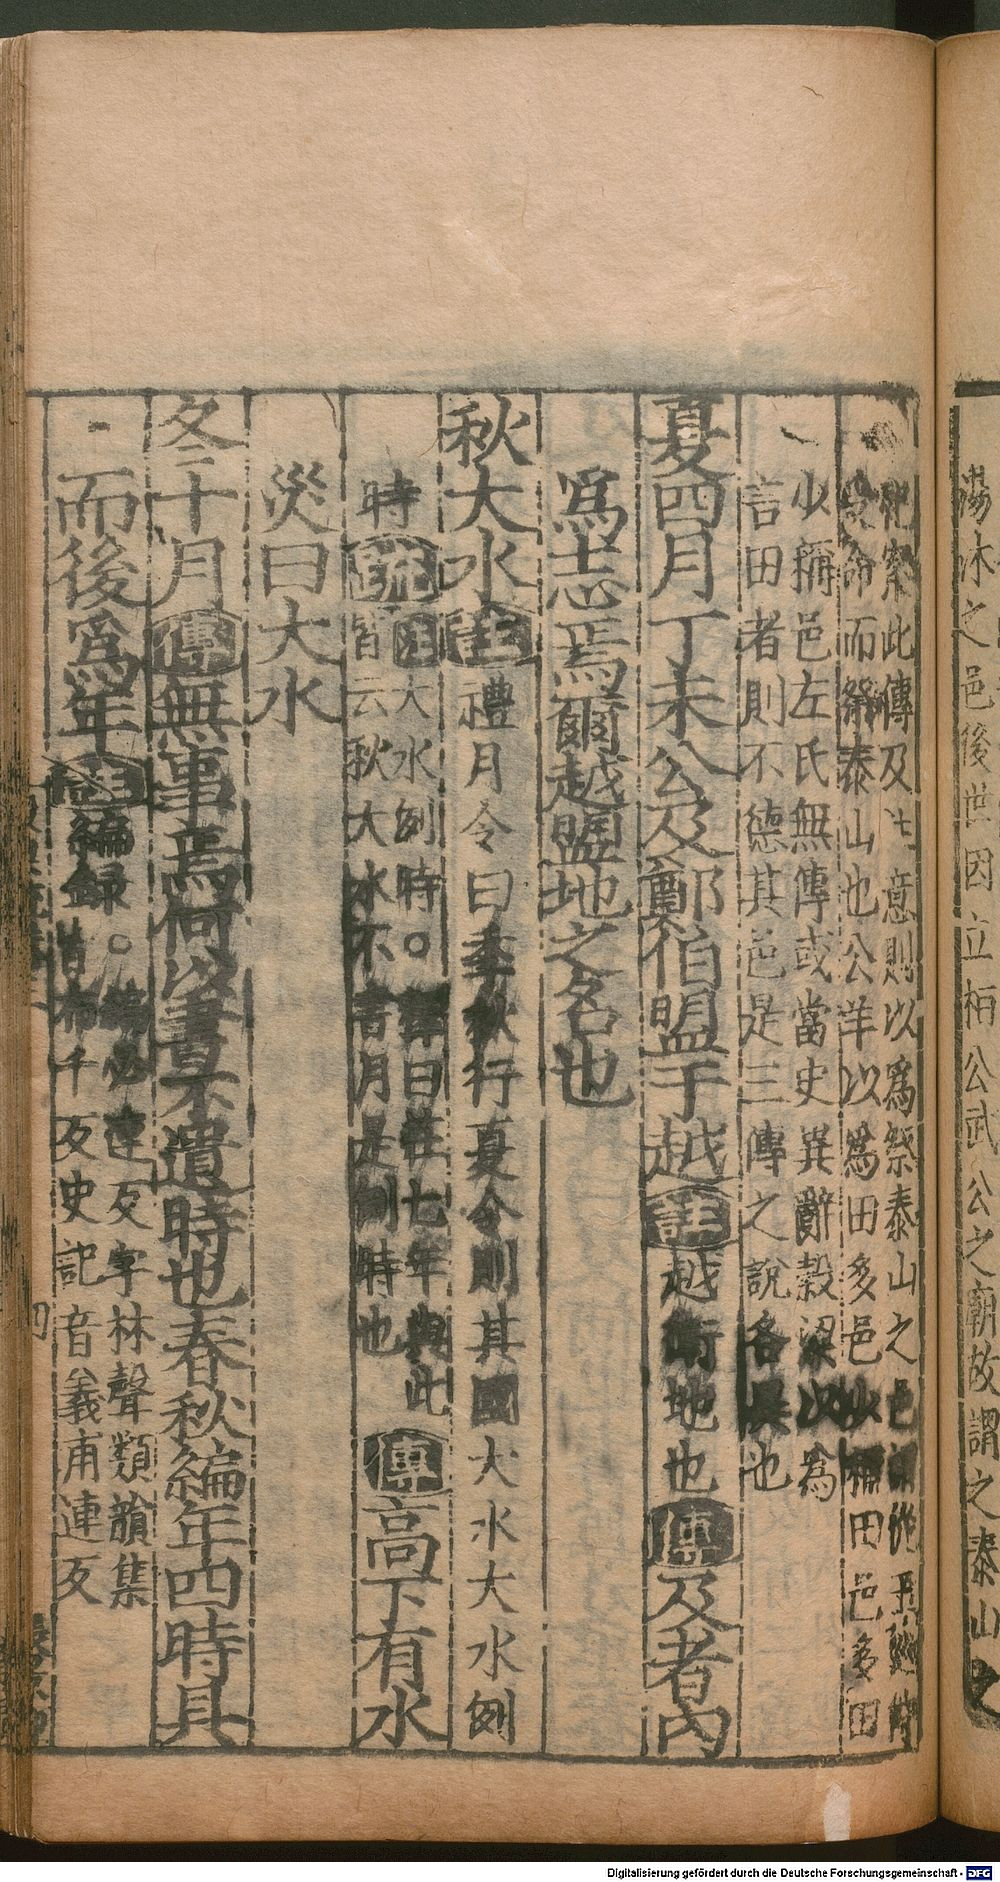 湯沐之邑後世因立桓公武公之廟故謂之泰山之
祀案此傳及注意則以為祭泰山之邑
受命而祭泰山也公羊以為田多邑少稱田邑多田
少稱邑左氏無傳或當史異辭穀梁以為
言田者則不德其邑是三傳之說各異也
夏四月丁未公及鄭伯盟于越註越衛地也傳及者內
爲志焉爾越盟地之名也
秋大水註禮月令曰季秋行夏令則其國大水大水例
時疏注大水例時○釋曰莊七年與此
皆云秋大水不書月是例時也傳高下有水
災曰大水
冬十月傳無事焉何以書不遺時也春秋編年四時具
而後爲年註編錄○編必連反字林聲類韻集
皆布千反史記音義甫連反